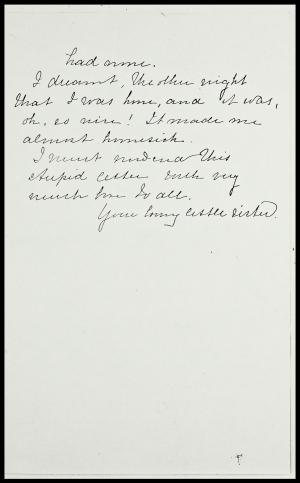 had come.
I dreamt, the other night
that I was home, and it was,
oh, so nice! It made me
almost homesick.
I must now end this
stupid letter with my
much love to all.
Your loving little sister.